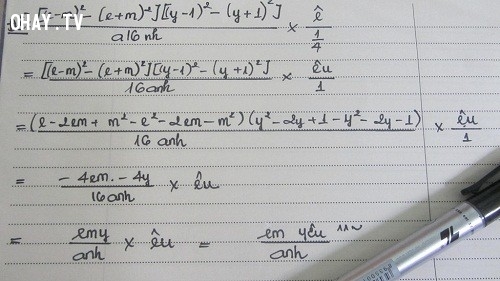 OHAY.TV
[(e-m)² - (e+m)²][(y-1)² - (y+1)²] / a16nh × ê / (1/4)
= [[(e-m)² - (e+m)²][(y-1)² - (y+1)²]] / 16anh × êu / 1
= (e - 2em + m² - e² - 2em - m²)(y² - 2y + 1 - y² - 2y - 1) / 16anh × êu / 1
= - 4em. - 4y / 16anh × êu
= emy / anh × êu = em yêu / anh